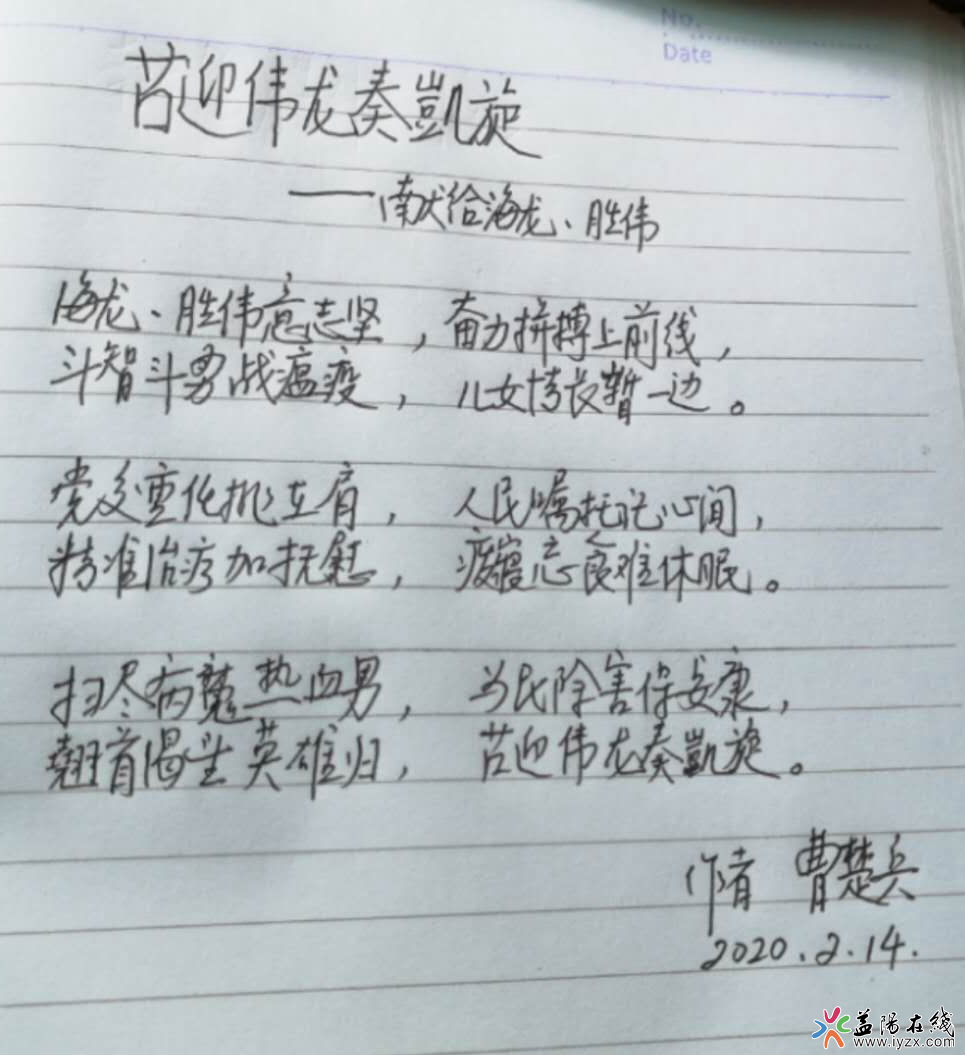 No.
Date
迎伟龙奏凱旋
——献给海龙、胜伟
海龙、胜伟意志坚，奋力拼搏上前线，
斗智斗勇战瘟疫，儿女情长暂一边。
党交重任挑在肩，人民嘱托记心间，
精准治疗加抚慰，废寝忘食难休眠。
扫尽病魔热血男，为民除害保安康，
翘首渴望英雄归，迎伟龙奏凱旋。
作者 曹楚兵
2020.2.14.
益陽在線
www.iyzx.com